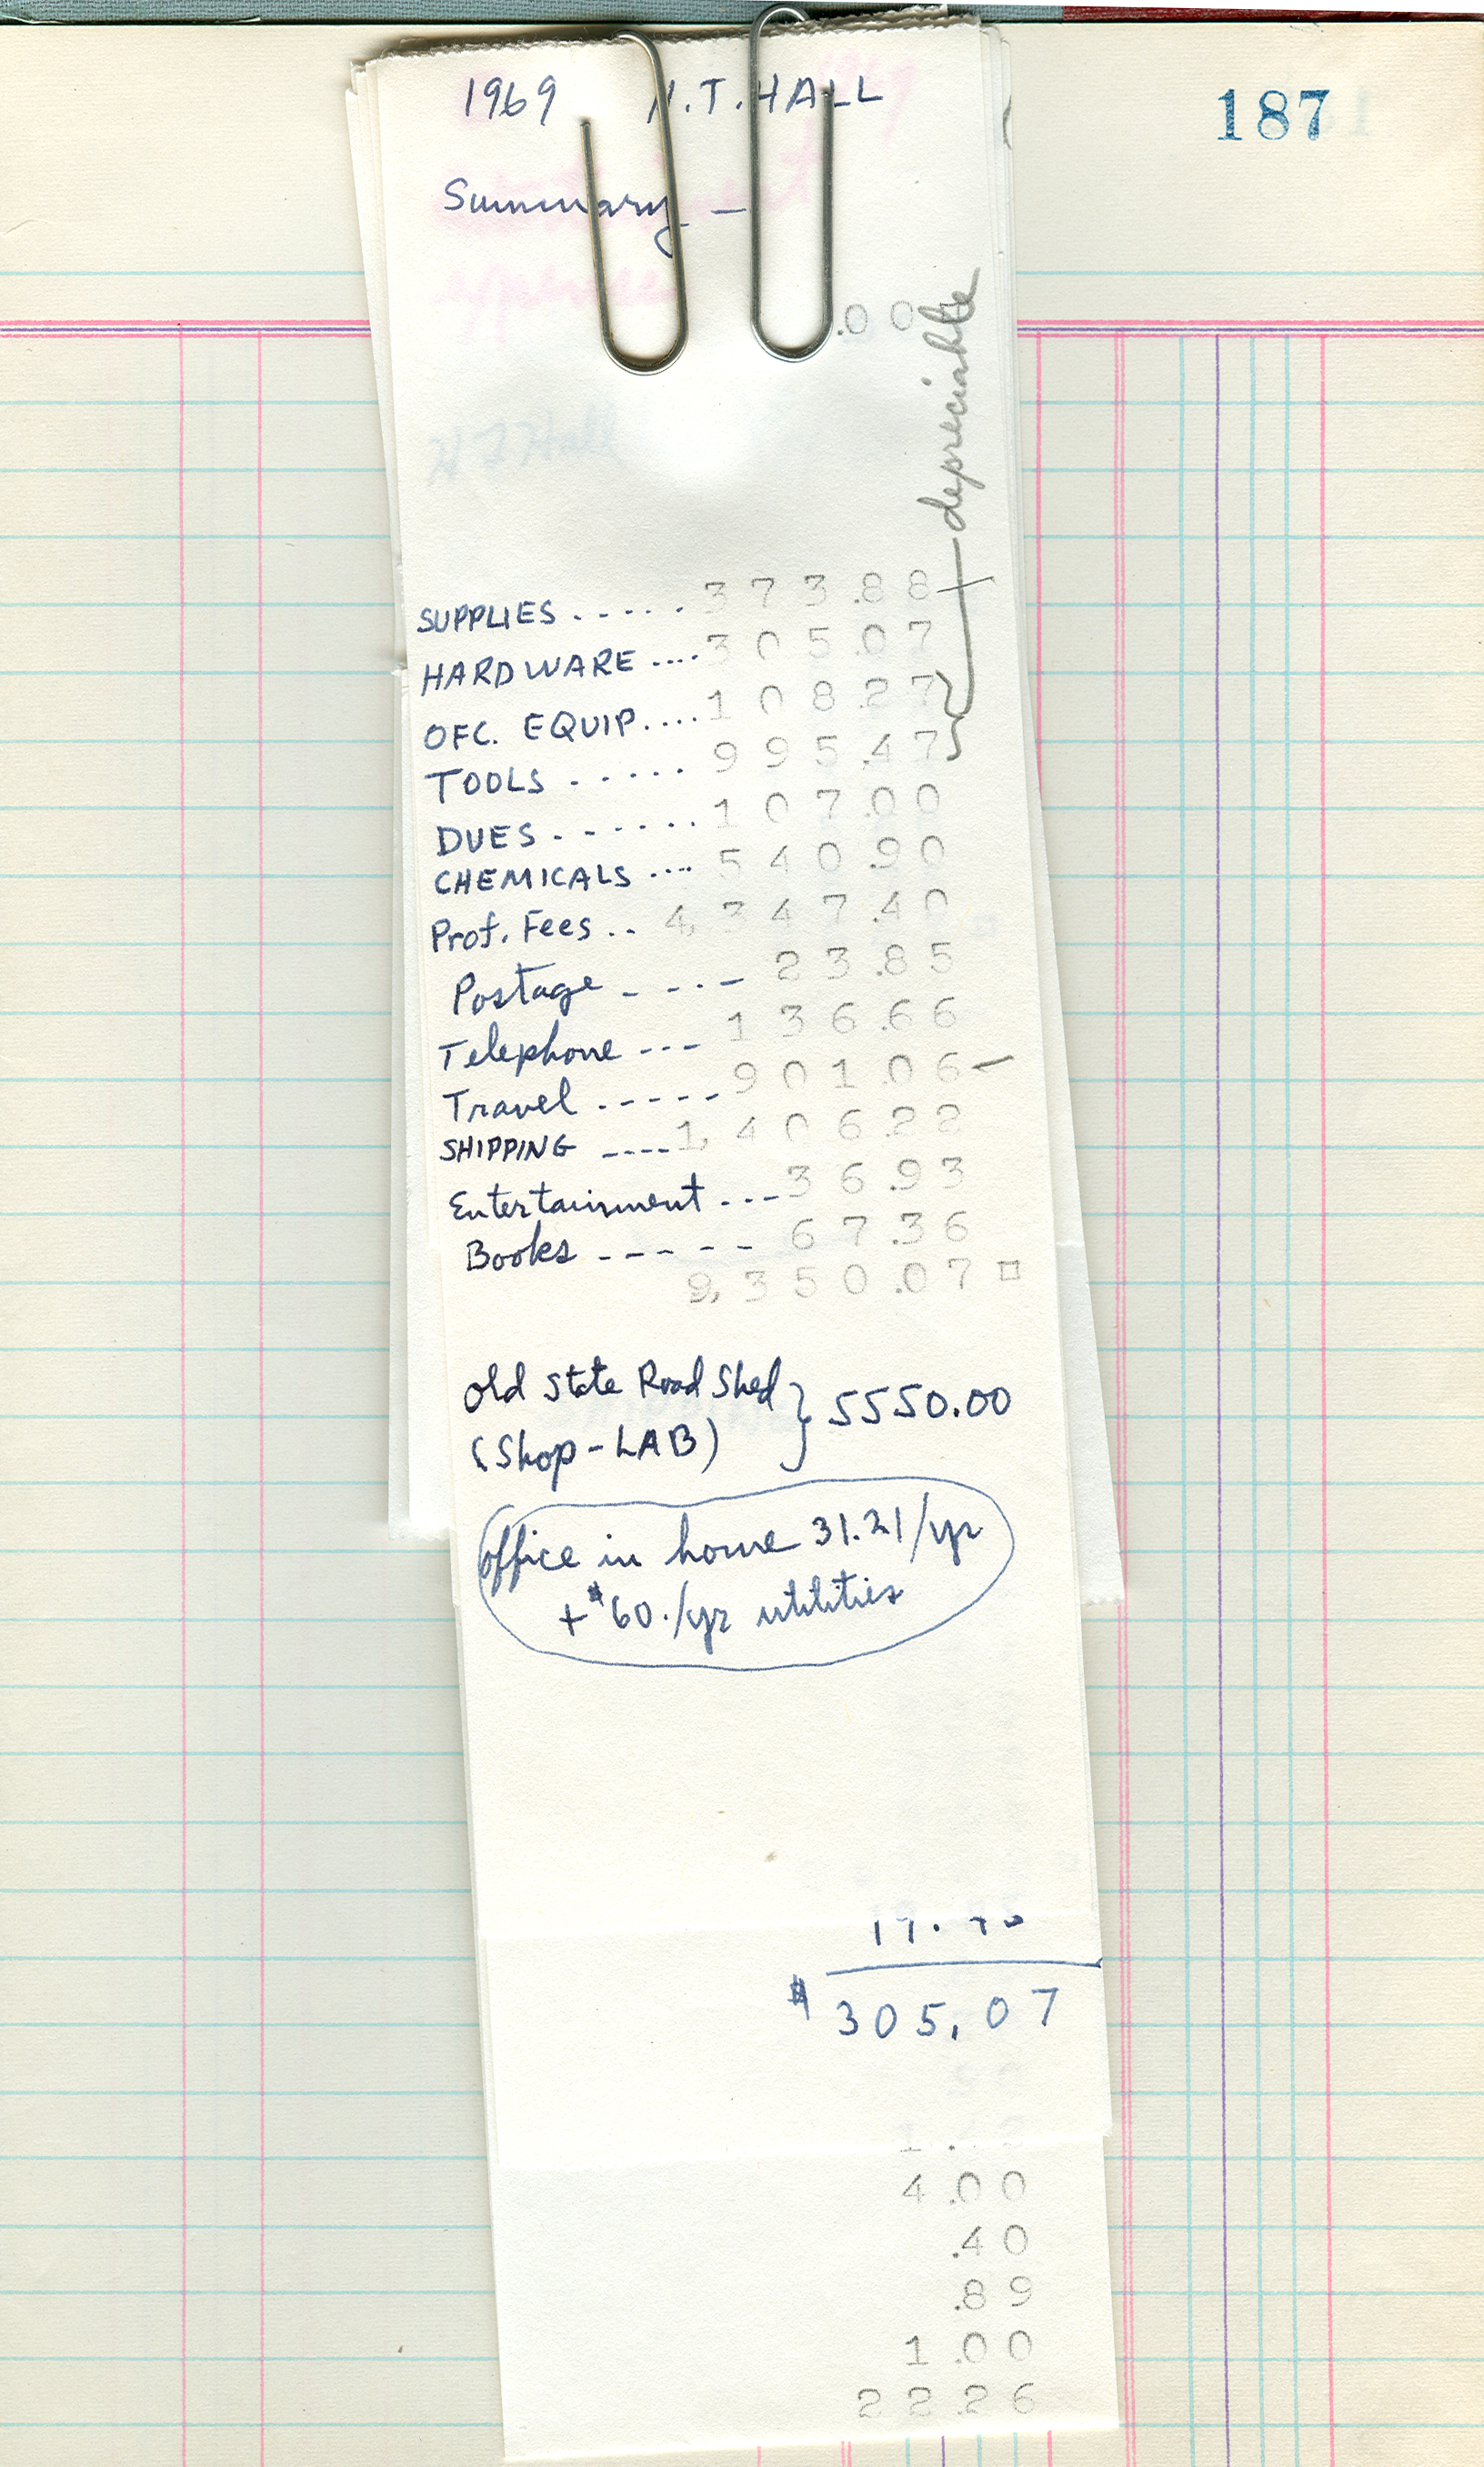 187
1969 H.T. HALL
Summary —
.00
depreciable
SUPPLIES ..... 373.88
HARDWARE .... 305.07
OFC. EQUIP.... 108.27
TOOLS ...... 995.47
DUES ....... 107.00
CHEMICALS .... 540.90
Prof. Fees .. 4,347.40
Postage ---- 23.85
Telephone --- 136.66
Travel ----- 901.06 —
SHIPPING ---- 1,406.22
Entertainment --- 36.93
Books ----- 67.36
9,350.07 □
Old State Road Shed } 5550.00
(Shop-LAB)
office in home 31.21/yr
+ $60./yr utilities
$ 305.07
4.00
.40
.89
1.00
22.26